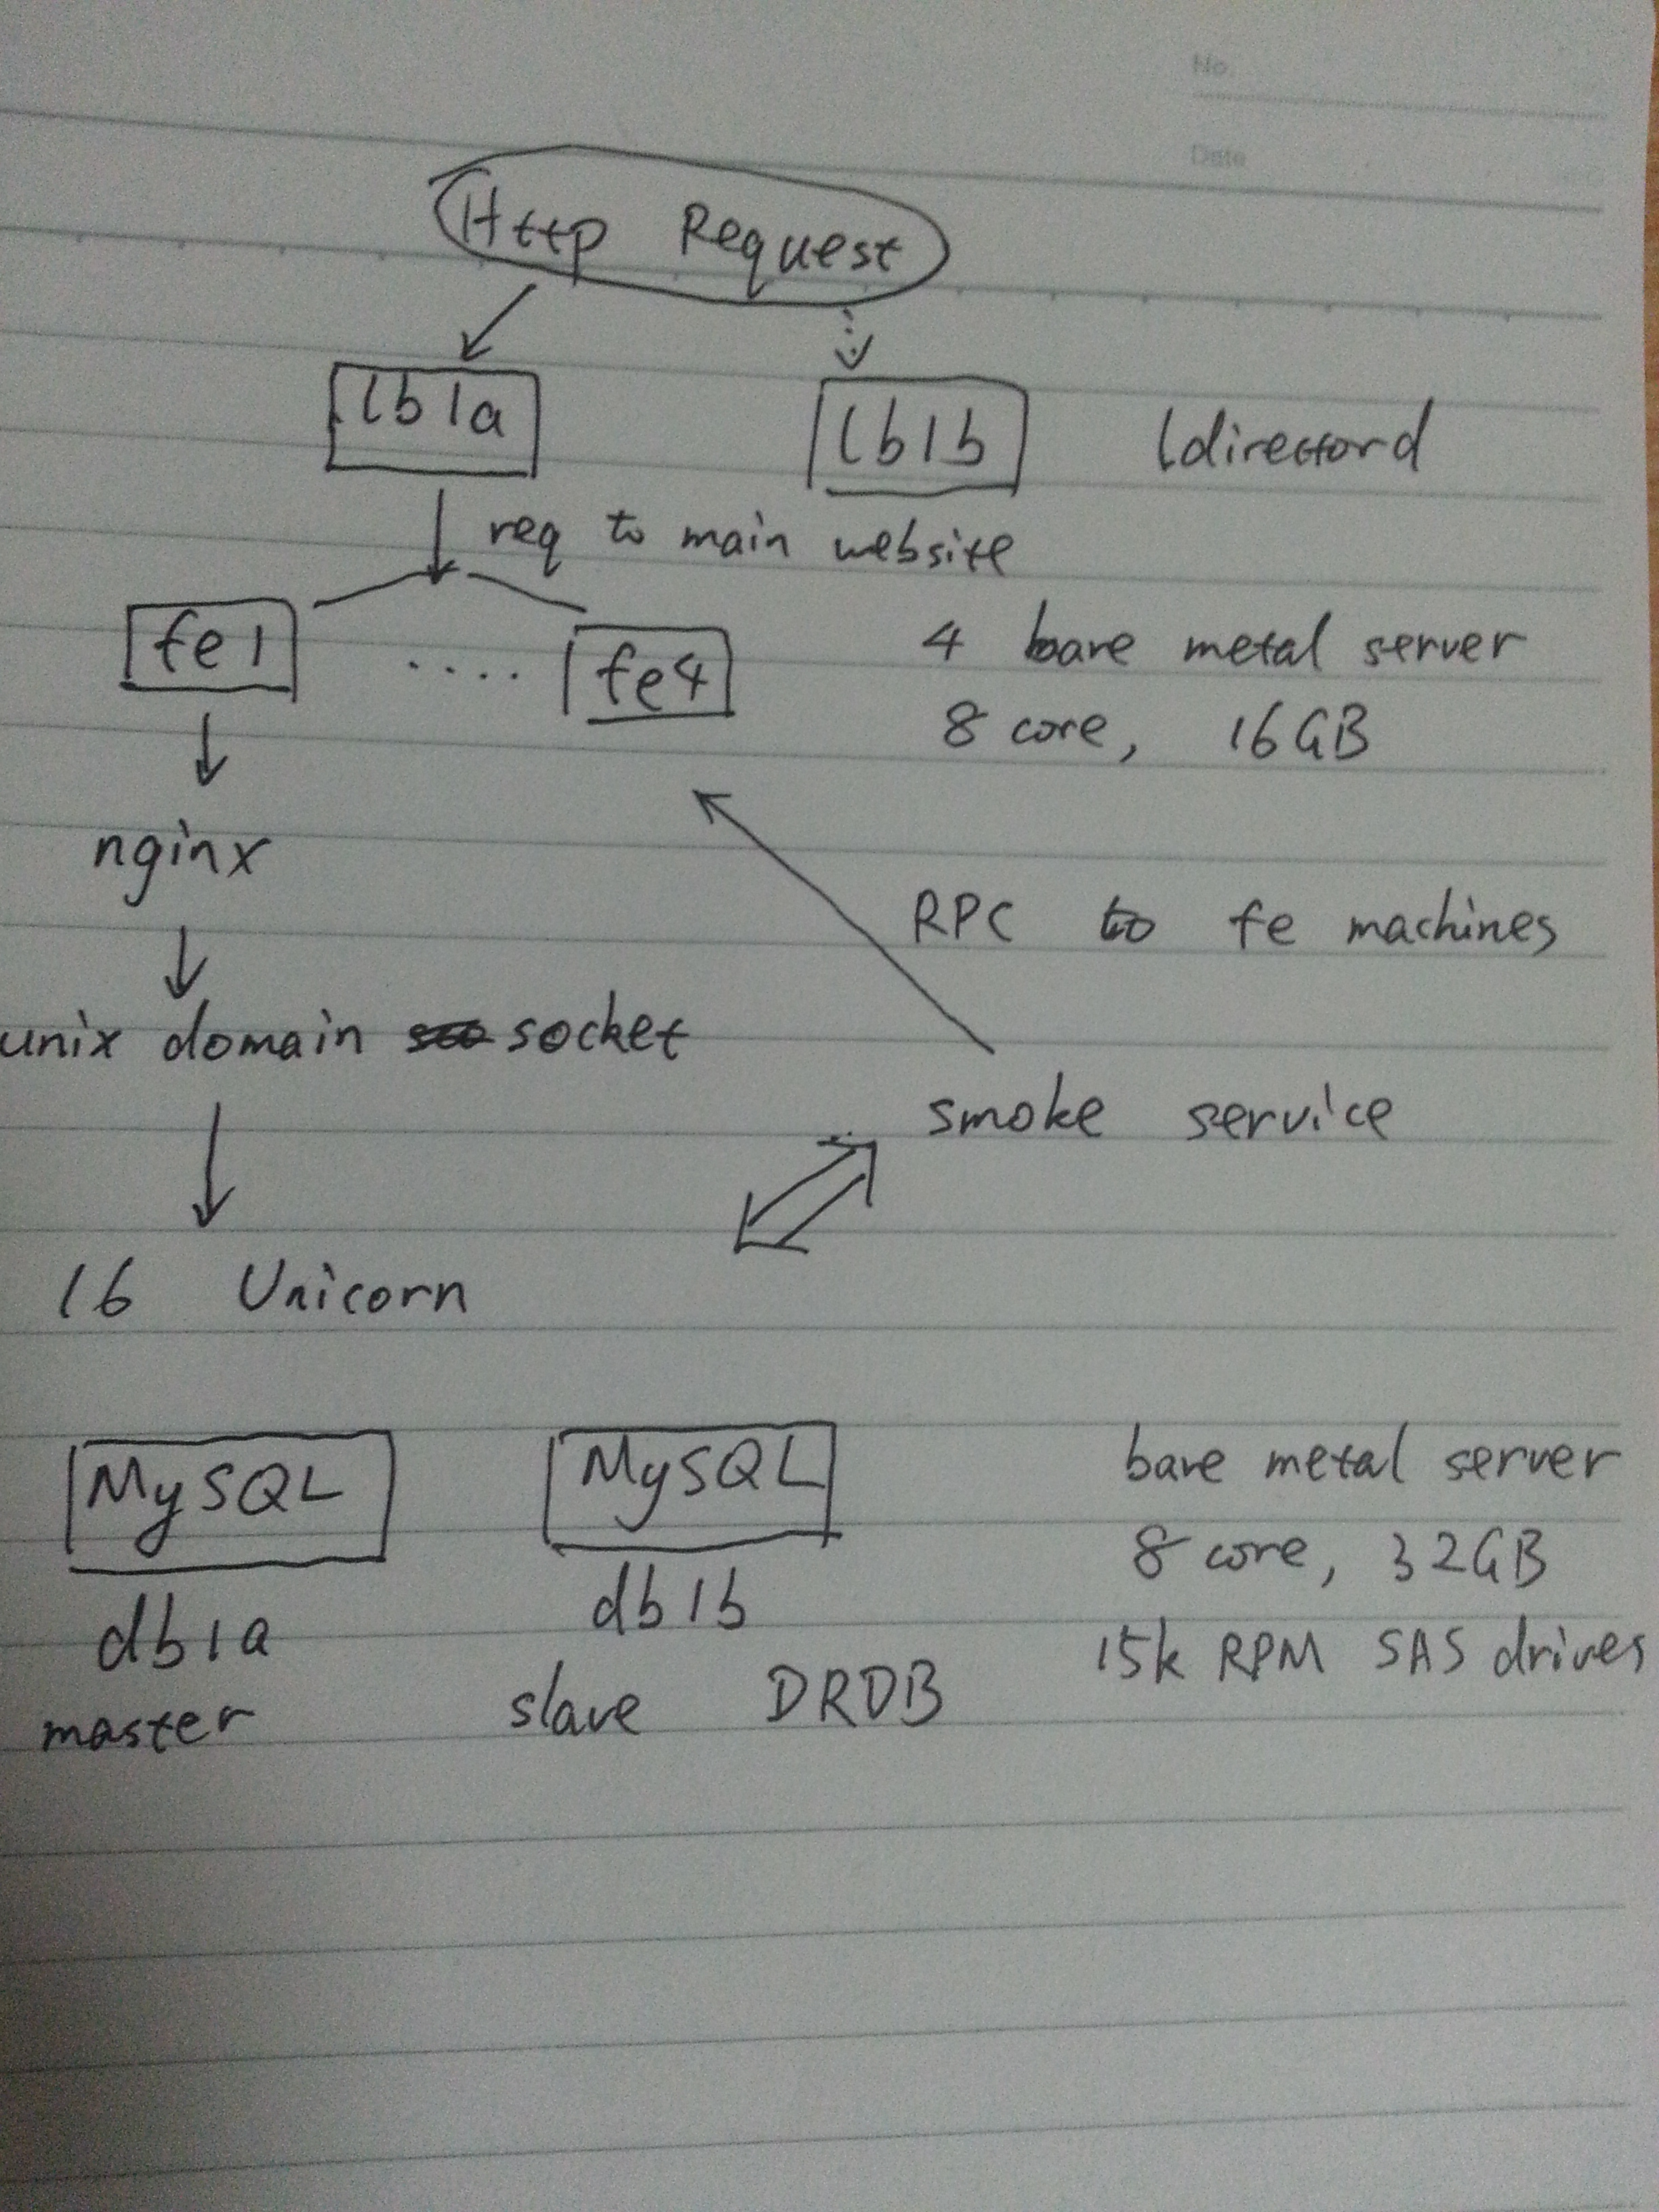 No.
Date
Http Request
lb1a
lb1b
ldirectord
req to main website
fe1 .... fe4
4 bare metal server
8 core, 16GB
nginx
RPC to fe machines
unix domain socket
smoke service
16 Unicorn
MySQL
MySQL
bare metal server
db1a
db1b
8 core, 32GB
master
slave DRDB
15k RPM SAS drives